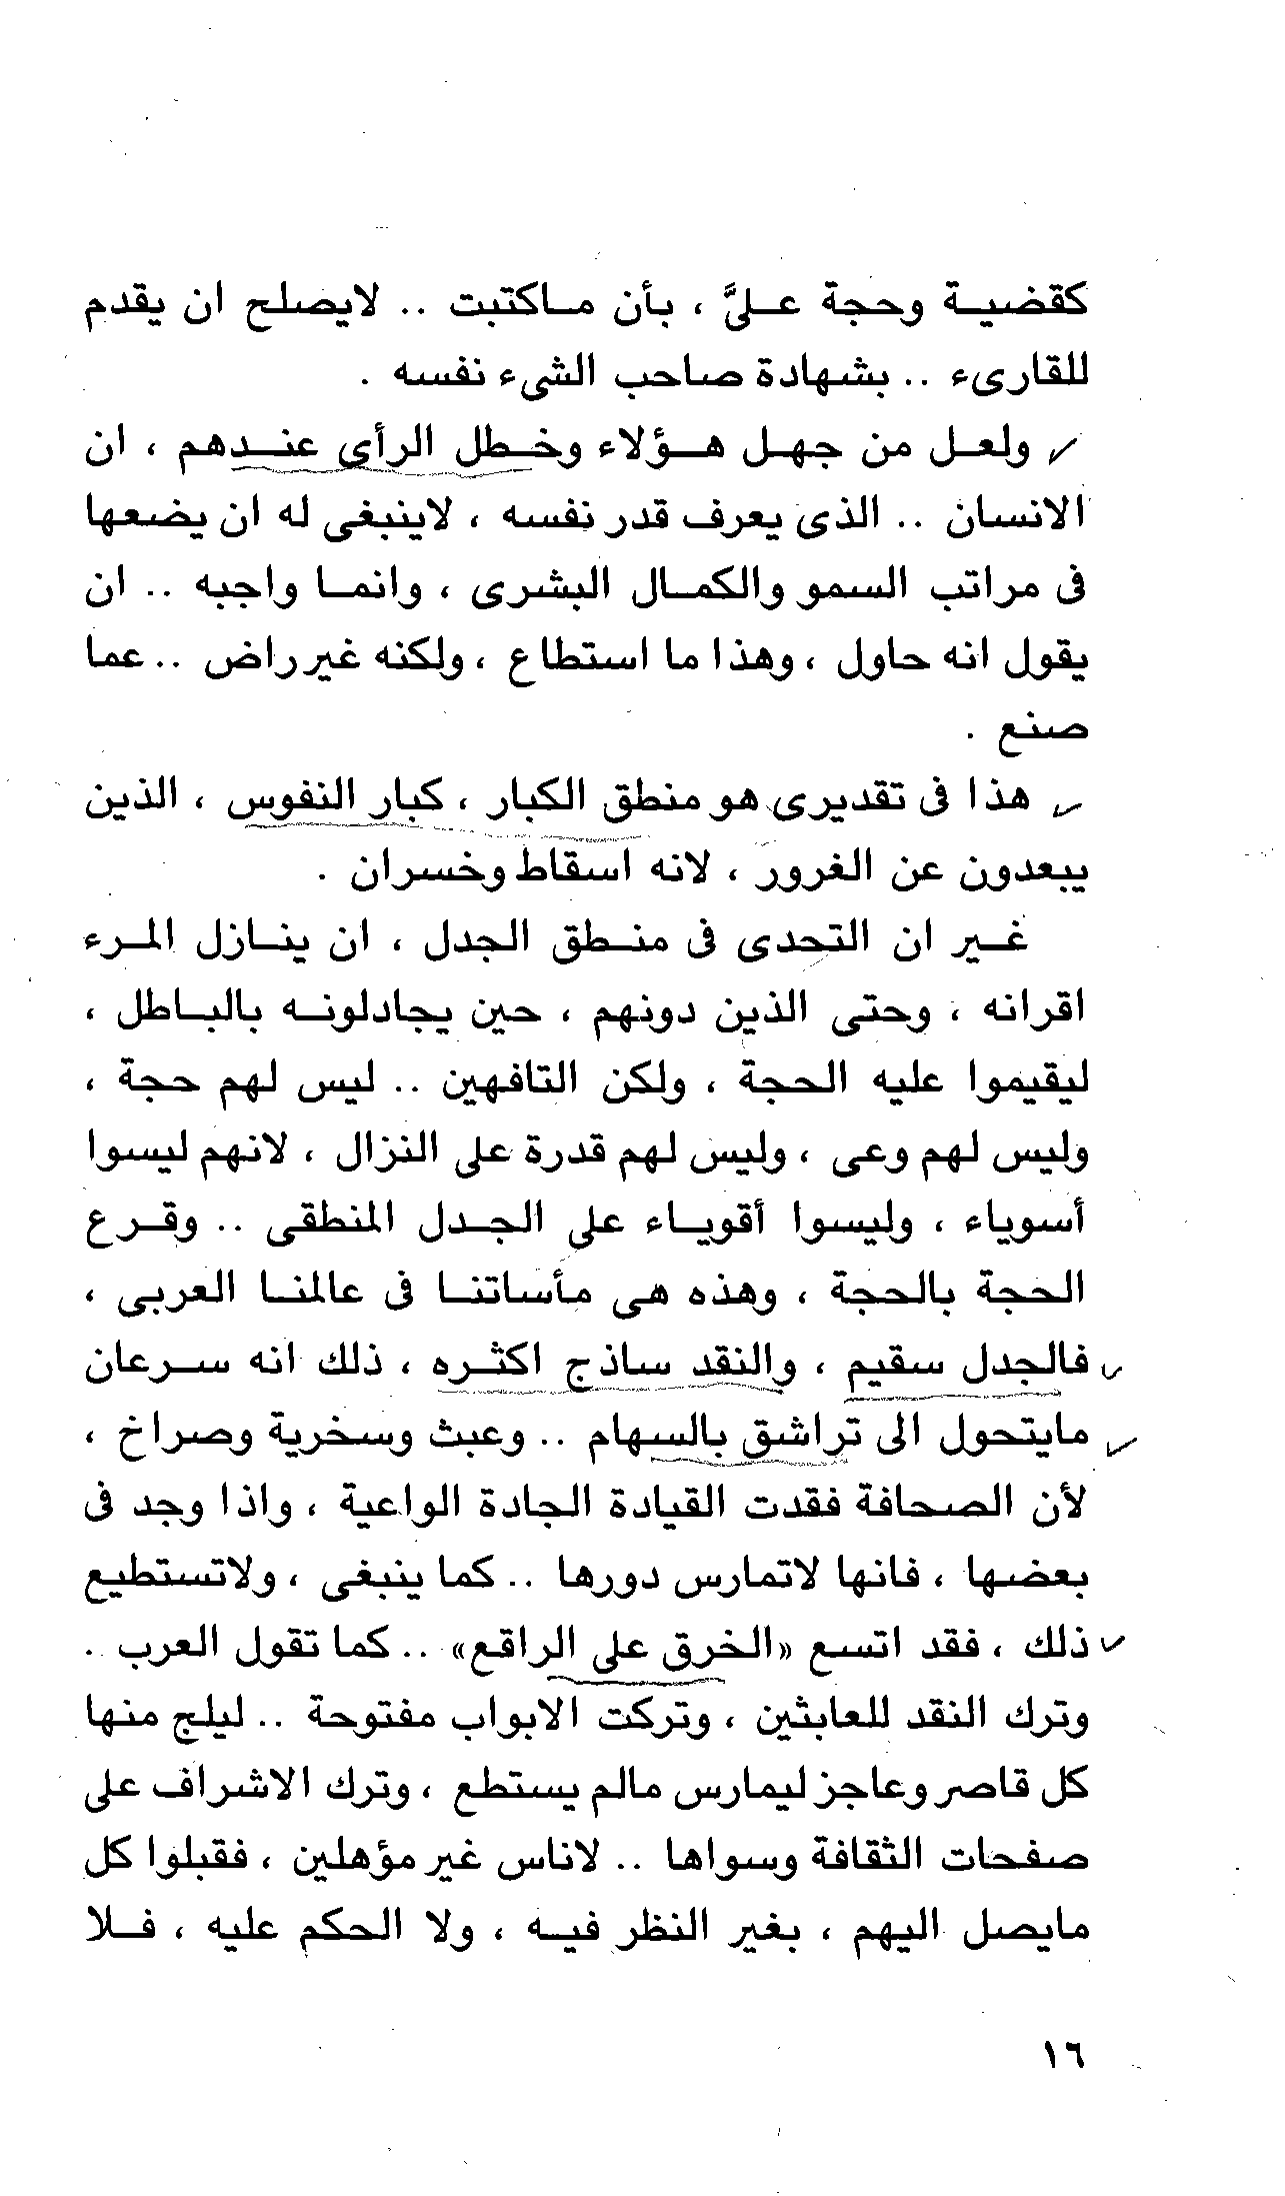 كقضيـة وحجة عـليَّ ، بأن مـاكتبت .. لايصلح ان يقدم
للقارىء .. بشهادة صاحب الشىء نفسه .
ولعـل من جهـل هـؤلاء وخـطل الرأى عنـدهم ، ان
الانسان .. الذى يعرف قدر نفسه ، لاينبغى له ان يضعها
فى مراتب السمو والكمـال البشرى ، وانمـا واجبه .. ان
يقول انه حاول ، وهذا ما استطاع ، ولكنه غير راض .. عما
صنع .
هذا فى تقديرى هو منطق الكبار ، كبار النفوس ، الذين
يبعدون عن الغرور ، لانه اسقاط وخسران .
غـير ان التحدى فى منـطق الجدل ، ان ينـازل المـرء
اقرانه ، وحتى الذين دونهم ، حين يجادلونـه بالبـاطل ،
ليقيموا عليه الحجة ، ولكن التافهين .. ليس لهم حجة ،
وليس لهم وعى ، وليس لهم قدرة على النزال ، لانهم ليسوا
أسوياء ، وليسوا أقويـاء على الجـدل المنطقى .. وقـرع
الحجة بالحجة ، وهذه هى مأساتنـا فى عالمنـا العربى ،
فالجدل سقيم ، والنقد ساذج اكثـره ، ذلك انه سـرعان
مايتحول الى تراشق بالسهام .. وعبث وسخرية وصراخ ،
لأن الصحافة فقدت القيادة الجادة الواعية ، واذا وجد فى
بعضها ، فانها لاتمارس دورها .. كما ينبغى ، ولاتستطيع
ذلك ، فقد اتسع «الخرق على الراقع» .. كما تقول العرب .
وترك النقد للعابثين ، وتركت الابواب مفتوحة .. ليلج منها
كل قاصر وعاجز ليمارس مالم يستطع ، وترك الاشراف على
صفحات الثقافة وسواها .. لاناس غير مؤهلين ، فقبلوا كل
مايصل اليهم ، بغير النظر فيـه ، ولا الحكم عليه ، فـلا
١٦